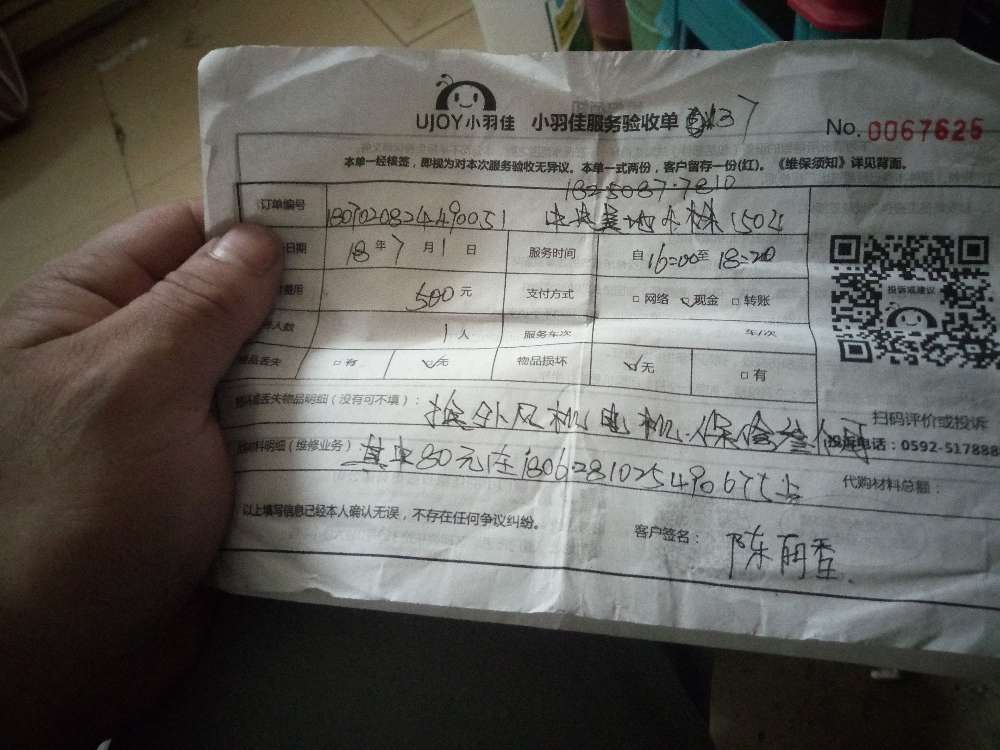 UJOY小羽佳 小羽佳服务验收单
No. 0067625
本单一经核签，即视为对本次服务验收无异议。本单一式两份，客户留存一份(红)。《维保须知》详见背面。
订单编号 18070208244490051
日期 18年7月1日 服务时间 自16:00至18:20
费用 500元 支付方式 □网络 ☑现金 □转账
人数 1人 服务车次 车/次
物品丢失 □有 ☑无 物品损坏 ☑无 □有
投诉或建议
丢失物品明细（没有可不填）： 换外风机电机.保修叁个月
扫码评价或投诉
投诉电话：0592-517888
材料明细（维修业务） 其中80元在18062810254490675上
代购材料总额：
以上填写信息已经本人确认无误，不存在任何争议纠纷。
客户签名： 陈丽香